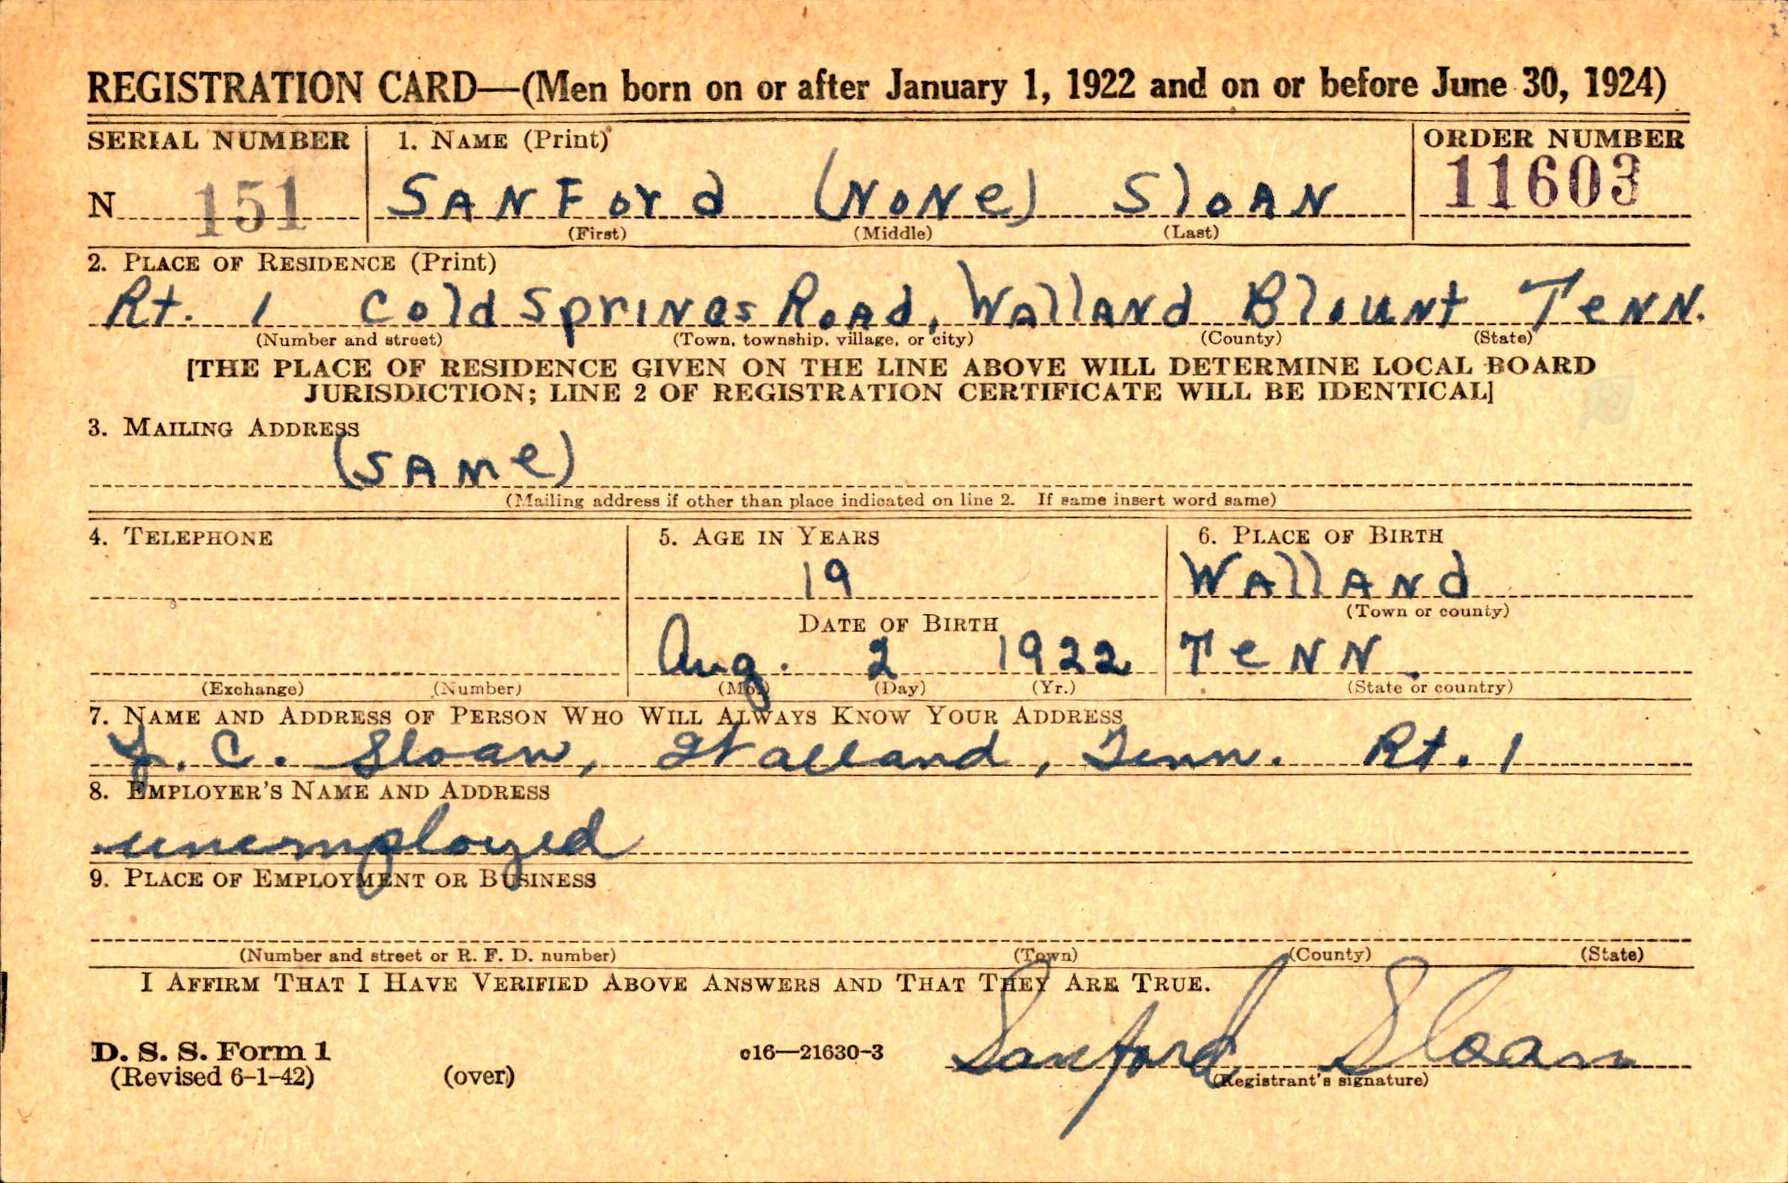 REGISTRATION CARD—(Men born on or after January 1, 1922 and on or before June 30, 1924)
SERIAL NUMBER 1. NAME (Print) ORDER NUMBER
N 151 SANFord (NoNe) SloAN 11603
(First) (Middle) (Last)
2. PLACE OF RESIDENCE (Print)
Rt. 1 Cold SpriNgs RoAd, WallANd BlouNt TeNN.
(Number and street) (Town, township, village, or city) (County) (State)
[THE PLACE OF RESIDENCE GIVEN ON THE LINE ABOVE WILL DETERMINE LOCAL BOARD
JURISDICTION; LINE 2 OF REGISTRATION CERTIFICATE WILL BE IDENTICAL]
3. MAILING ADDRESS
(SAMe)
(Mailing address if other than place indicated on line 2. If same insert word same)
4. TELEPHONE 5. AGE IN YEARS 6. PLACE OF BIRTH
19 WAllANd
(Town or county)
DATE OF BIRTH
Aug. 2 1922 TeNN.
(Exchange) (Number) (Mo.) (Day) (Yr.) (State or country)
7. NAME AND ADDRESS OF PERSON WHO WILL ALWAYS KNOW YOUR ADDRESS
C. Sloan, Walland, Tenn. Rt. 1
8. EMPLOYER'S NAME AND ADDRESS
unemployed
9. PLACE OF EMPLOYMENT OR BUSINESS
(Number and street or R. F. D. number) (Town) (County) (State)
I AFFIRM THAT I HAVE VERIFIED ABOVE ANSWERS AND THAT THEY ARE TRUE.
D. S. S. Form 1
(Revised 6-1-42) (over) c16—21630-3 Sanford Sloan
(Registrant's signature)